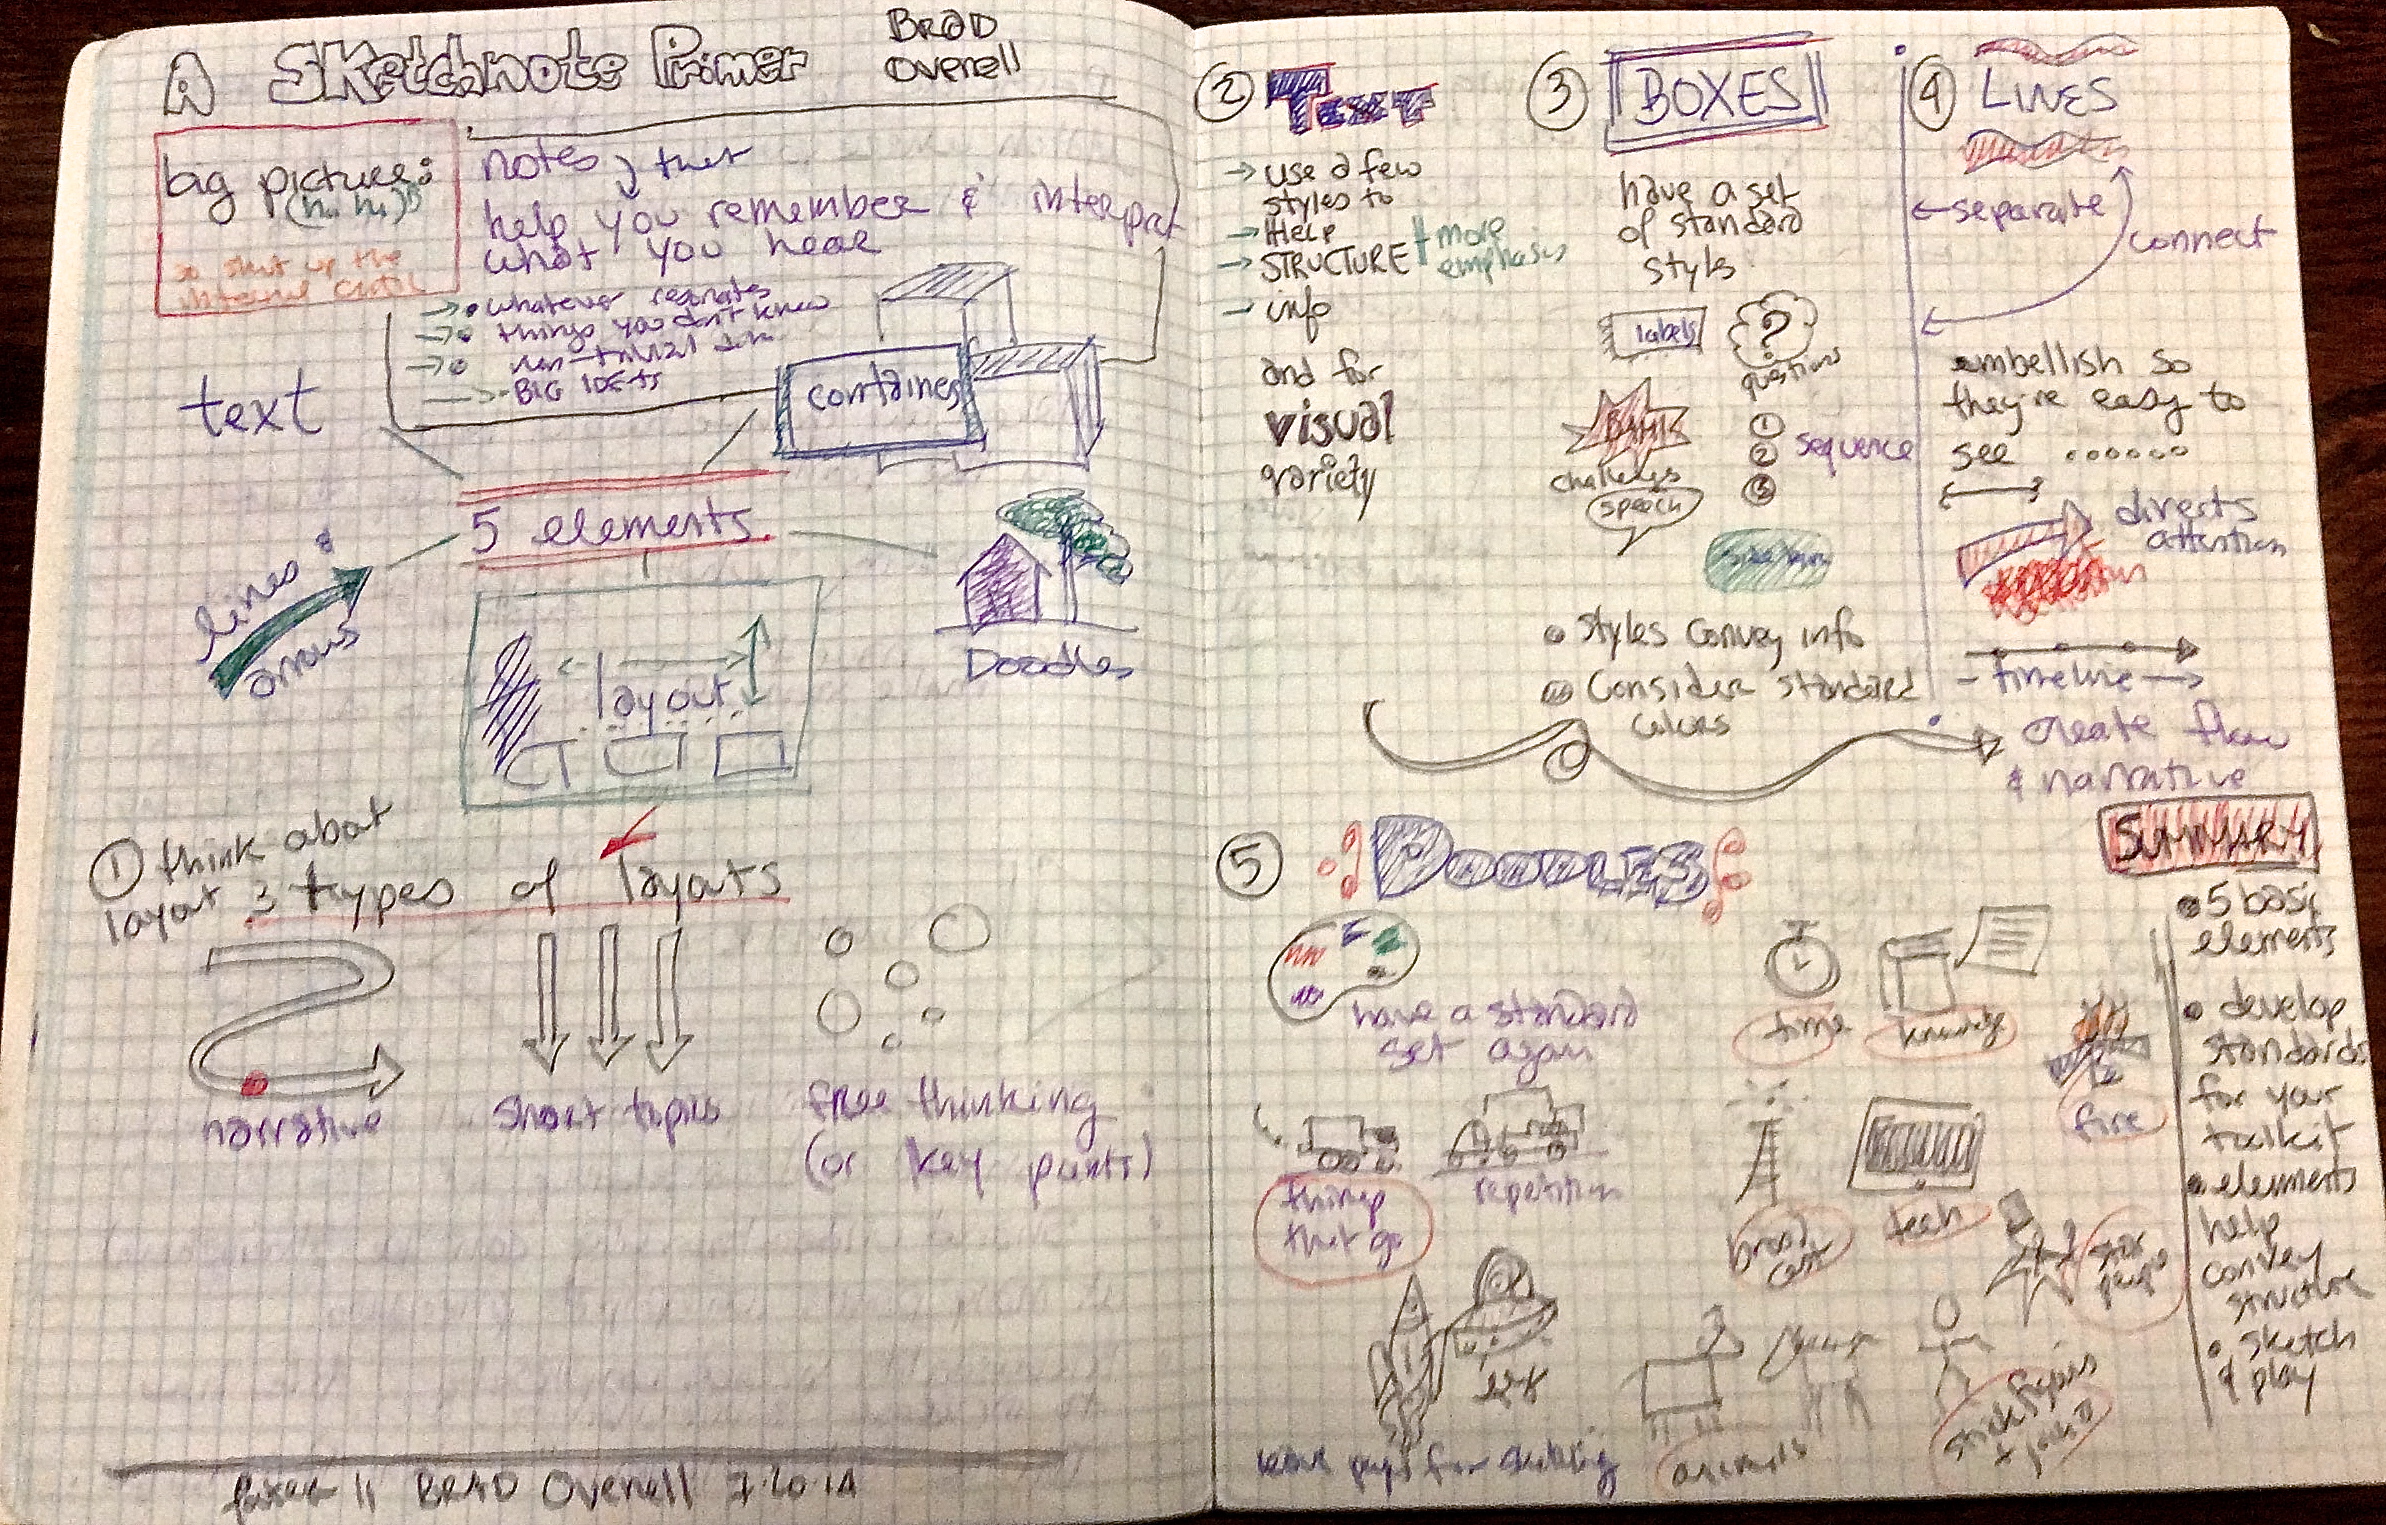 A Sketchnote Primer
BRAD
Overell
big picture:
so shut up the
internal critic
notes that
help you remember & interpret
what you hear
whatever resonates
things you don't know
BIG IDEAS
text
container
5 elements
lines &
arrows
layout
Doodles
① think about
layout 3 types of layouts
narrative
short topics
free thinking
(or key points)
BRAD Overell 7.20.14
② Text
→ use a few
styles to
→ Help
→ STRUCTURE
→ info
more
emphasis
and for
visual
variety
③ BOXES
have a set
of standard
styles
labels
?
questions
BAM!
challenges
①
②
③
sequence
speech
Styles convey info
Consider standard
colors
④ LINES
separate
connect
embellish so
they're easy to
see
directs
attention
timeline
create flow
& narrative
⑤ DOODLES
have a standard
set again
time
knowledge
fire
things
that go
repetition
broad
cast
tech
star
peeps
animals
stick figures
SUMMARY
5 basic
elements
develop
standards
for your
toolkit
elements
help
convey
structure
sketch
& play